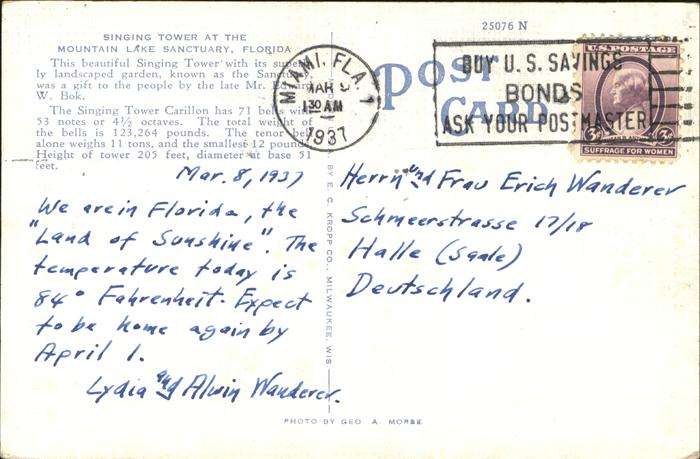 SINGING TOWER AT THE
MOUNTAIN LAKE SANCTUARY, FLORIDA
This beautiful Singing Tower with its superb-
ly landscaped garden, known as the Sanctuary,
was a gift to the people by the late Mr. Edward
W. Bok.
The Singing Tower Carillon has 71 bells with
53 notes or 4½ octaves. The total weight of
the bells is 123,264 pounds. The tenor bell
alone weighs 11 tons, and the smallest 12 pounds.
Height of tower 205 feet, diameter at base 51
feet.
Mar. 8, 1937
We are in Florida, the
"Land of Sunshine". The
temperature today is
84° Fahrenheit. Expect
to be home again by
April 1.
Lydia and Alwin Wanderer.
BY E. C. KROPP CO., MILWAUKEE, WIS.
25076 N
POST
CARD
MIAMI, FLA. 1
MAR 9
130 AM
1937
BUY U.S. SAVINGS
BONDS
ASK YOUR POSTMASTER
U.S. POSTAGE
3¢ 3¢
SUFFRAGE FOR WOMEN
Herrn und Frau Erich Wanderer
Schmeerstrasse 17/18
Halle (Saale)
Deutschland.
PHOTO BY GEO. A. MORSE